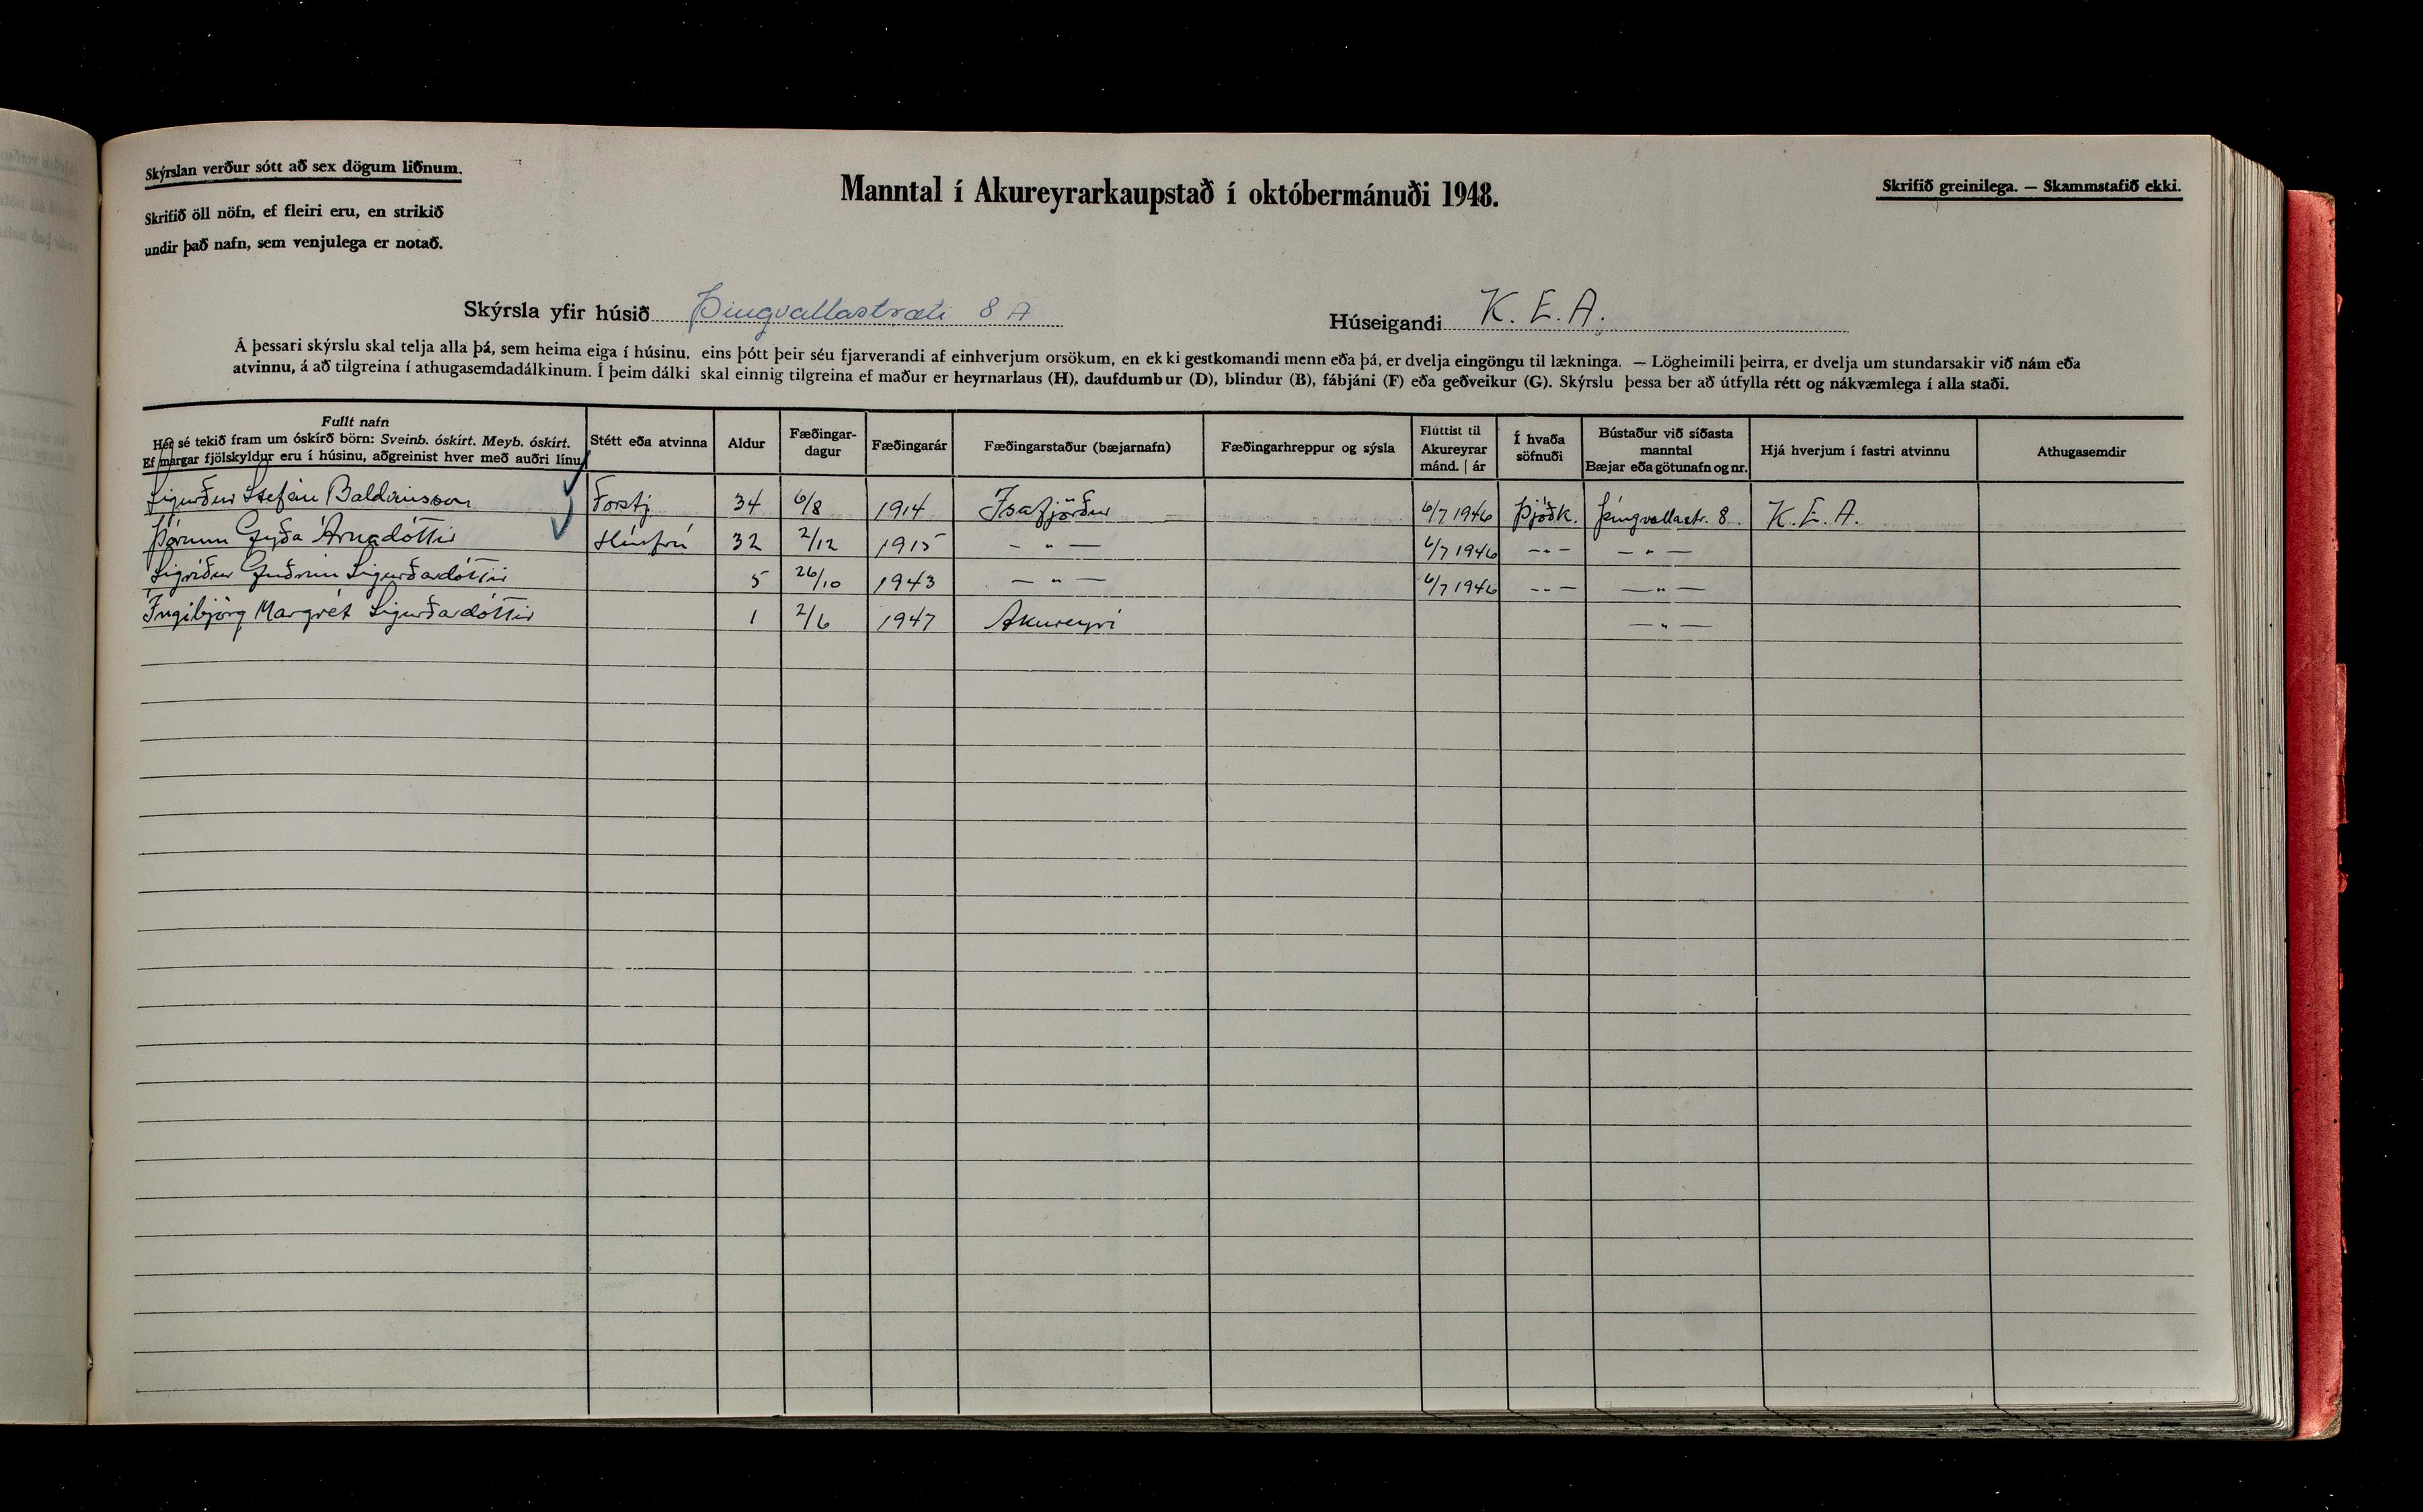 Skýrslan verður sótt að sex dögum liðnum.
Skrifið öll nöfn, ef fleiri eru, en strikið
undir það nafn, sem venjulega er notað.
Manntal í Akureyrarkaupstað í októbermánuði 1948.
Skrifið greinilega. — Skammstafið ekki.
Skýrsla yfir húsið Þingvallastræti 8 A
Húseigandi K. E. A.
Á þessari skýrslu skal telja alla þá, sem heima eiga í húsinu, eins þótt þeir séu fjarverandi af einhverjum orsökum, en ekki gestkomandi menn eða þá, er dvelja eingöngu til lækninga. — Lögheimili þeirra, er dvelja um stundarsakir við nám eða
atvinnu, á að tilgreina í athugasemdadálkinum. Í þeim dálki skal einnig tilgreina ef maður er heyrnarlaus (H), daufdumbur (D), blindur (B), fábjáni (F) eða geðveikur (G). Skýrslu þessa ber að útfylla rétt og nákvæmlega í alla staði.
Fullt nafn
Hér sé tekið fram um óskírð börn: Sveinb. óskírt. Meyb. óskírt.
Ef margar fjölskyldur eru í húsinu, aðgreinist hver með auðri línu
Stétt eða atvinna
Aldur
Fæðingar-
dagur
Fæðingarár
Fæðingarstaður (bæjarnafn)
Fæðingarhreppur og sýsla
Fluttist til
Akureyrar
mánd. | ár
Í hvaða
söfnuði
Bústaður við síðasta
manntal
Bæjar eða götunafn og nr.
Hjá hverjum í fastri atvinnu
Athugasemdir
Sigurður Stefán Baldvinsson Forstj. 34 6/8 1914 Ísafjörður 6/7 1946 Þjóðk. Þingvallastr. 8 K. E. A.
Þórunn Gyða Árnadóttir Húsfrú 32 2/12 1915 — " — 6/7 1946 — " — — " —
Sigríður Guðrún Sigurðardóttir 5 26/10 1943 — " — 6/7 1946 — " — — " —
Ingibjörg Margrét Sigurðardóttir 1 2/6 1947 Akureyri — " —